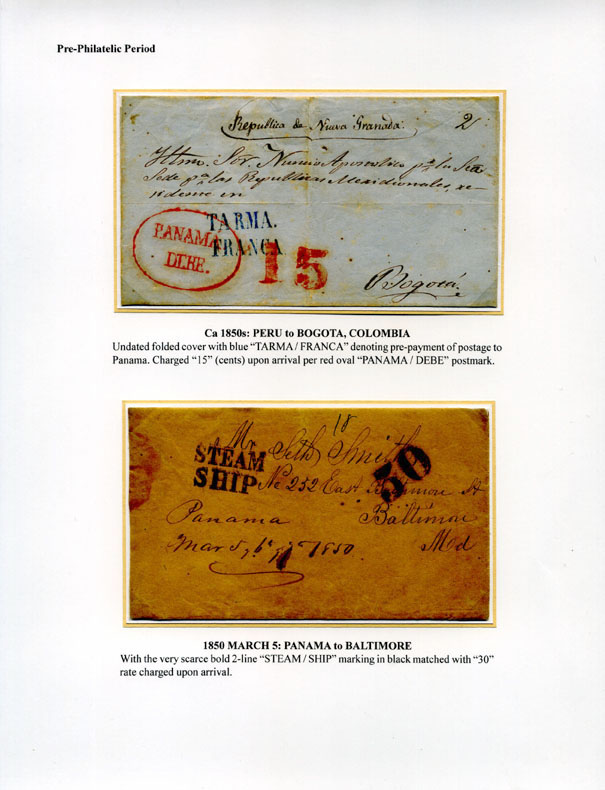 Pre-Philatelic Period
Republica de Nueva Granada.
2
Illmo. Sor. Nuncio Apostolico pa. la Sta.
Sede pa. las Republicas Meridionales, re-
sidente en
TARMA.
FRANCA
PANAMA
DEBE.
15
Bogotá.
Ca 1850s: PERU to BOGOTA, COLOMBIA
Undated folded cover with blue “TARMA / FRANCA” denoting pre-payment of postage to
Panama. Charged “15” (cents) upon arrival per red oval “PANAMA / DEBE” postmark.
18
Mr Seth Smith
STEAM
SHIP
30
No 252 East St
Panama Baltimore
Mar 5 1850 Md
1850 MARCH 5: PANAMA to BALTIMORE
With the very scarce bold 2-line “STEAM / SHIP” marking in black matched with “30”
rate charged upon arrival.